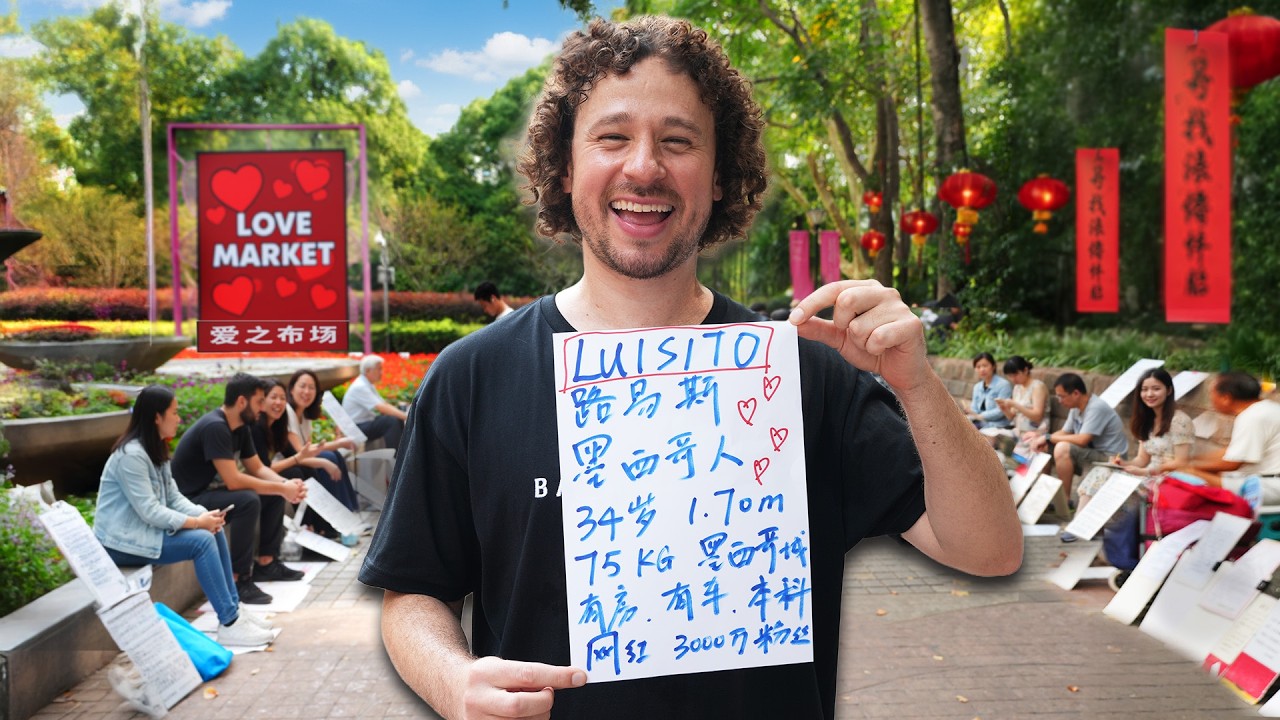 LOVE
MARKET
爱之布场
LUISITO
路易斯
墨西哥人
34岁 1.70m
75 KG 墨西哥城
有房.有车.本科
网红 3000万粉丝
BA
寻找
寻找